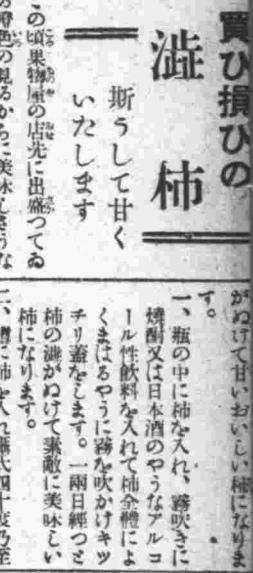 買ひ損ひの
澁柿
斯うして甘く
いたします
この頃果物屋の店先に出盛つてゐ
橙色の見るからに美味しさうな
がぬけて甘いおいしい柿になりま
す。
一、瓶の中に柿を入れ、霧吹きに
燒酎又は日本酒のやうなアルコ
ール性飲料を入れて柿全體によ
くまはるやうに霧を吹かけキツ
チリ蓋をします。一兩日經つと
柿の澁がぬけて素敵に美味しい
柿になります。
二、 に柿を入れ攝氏四十度乃至